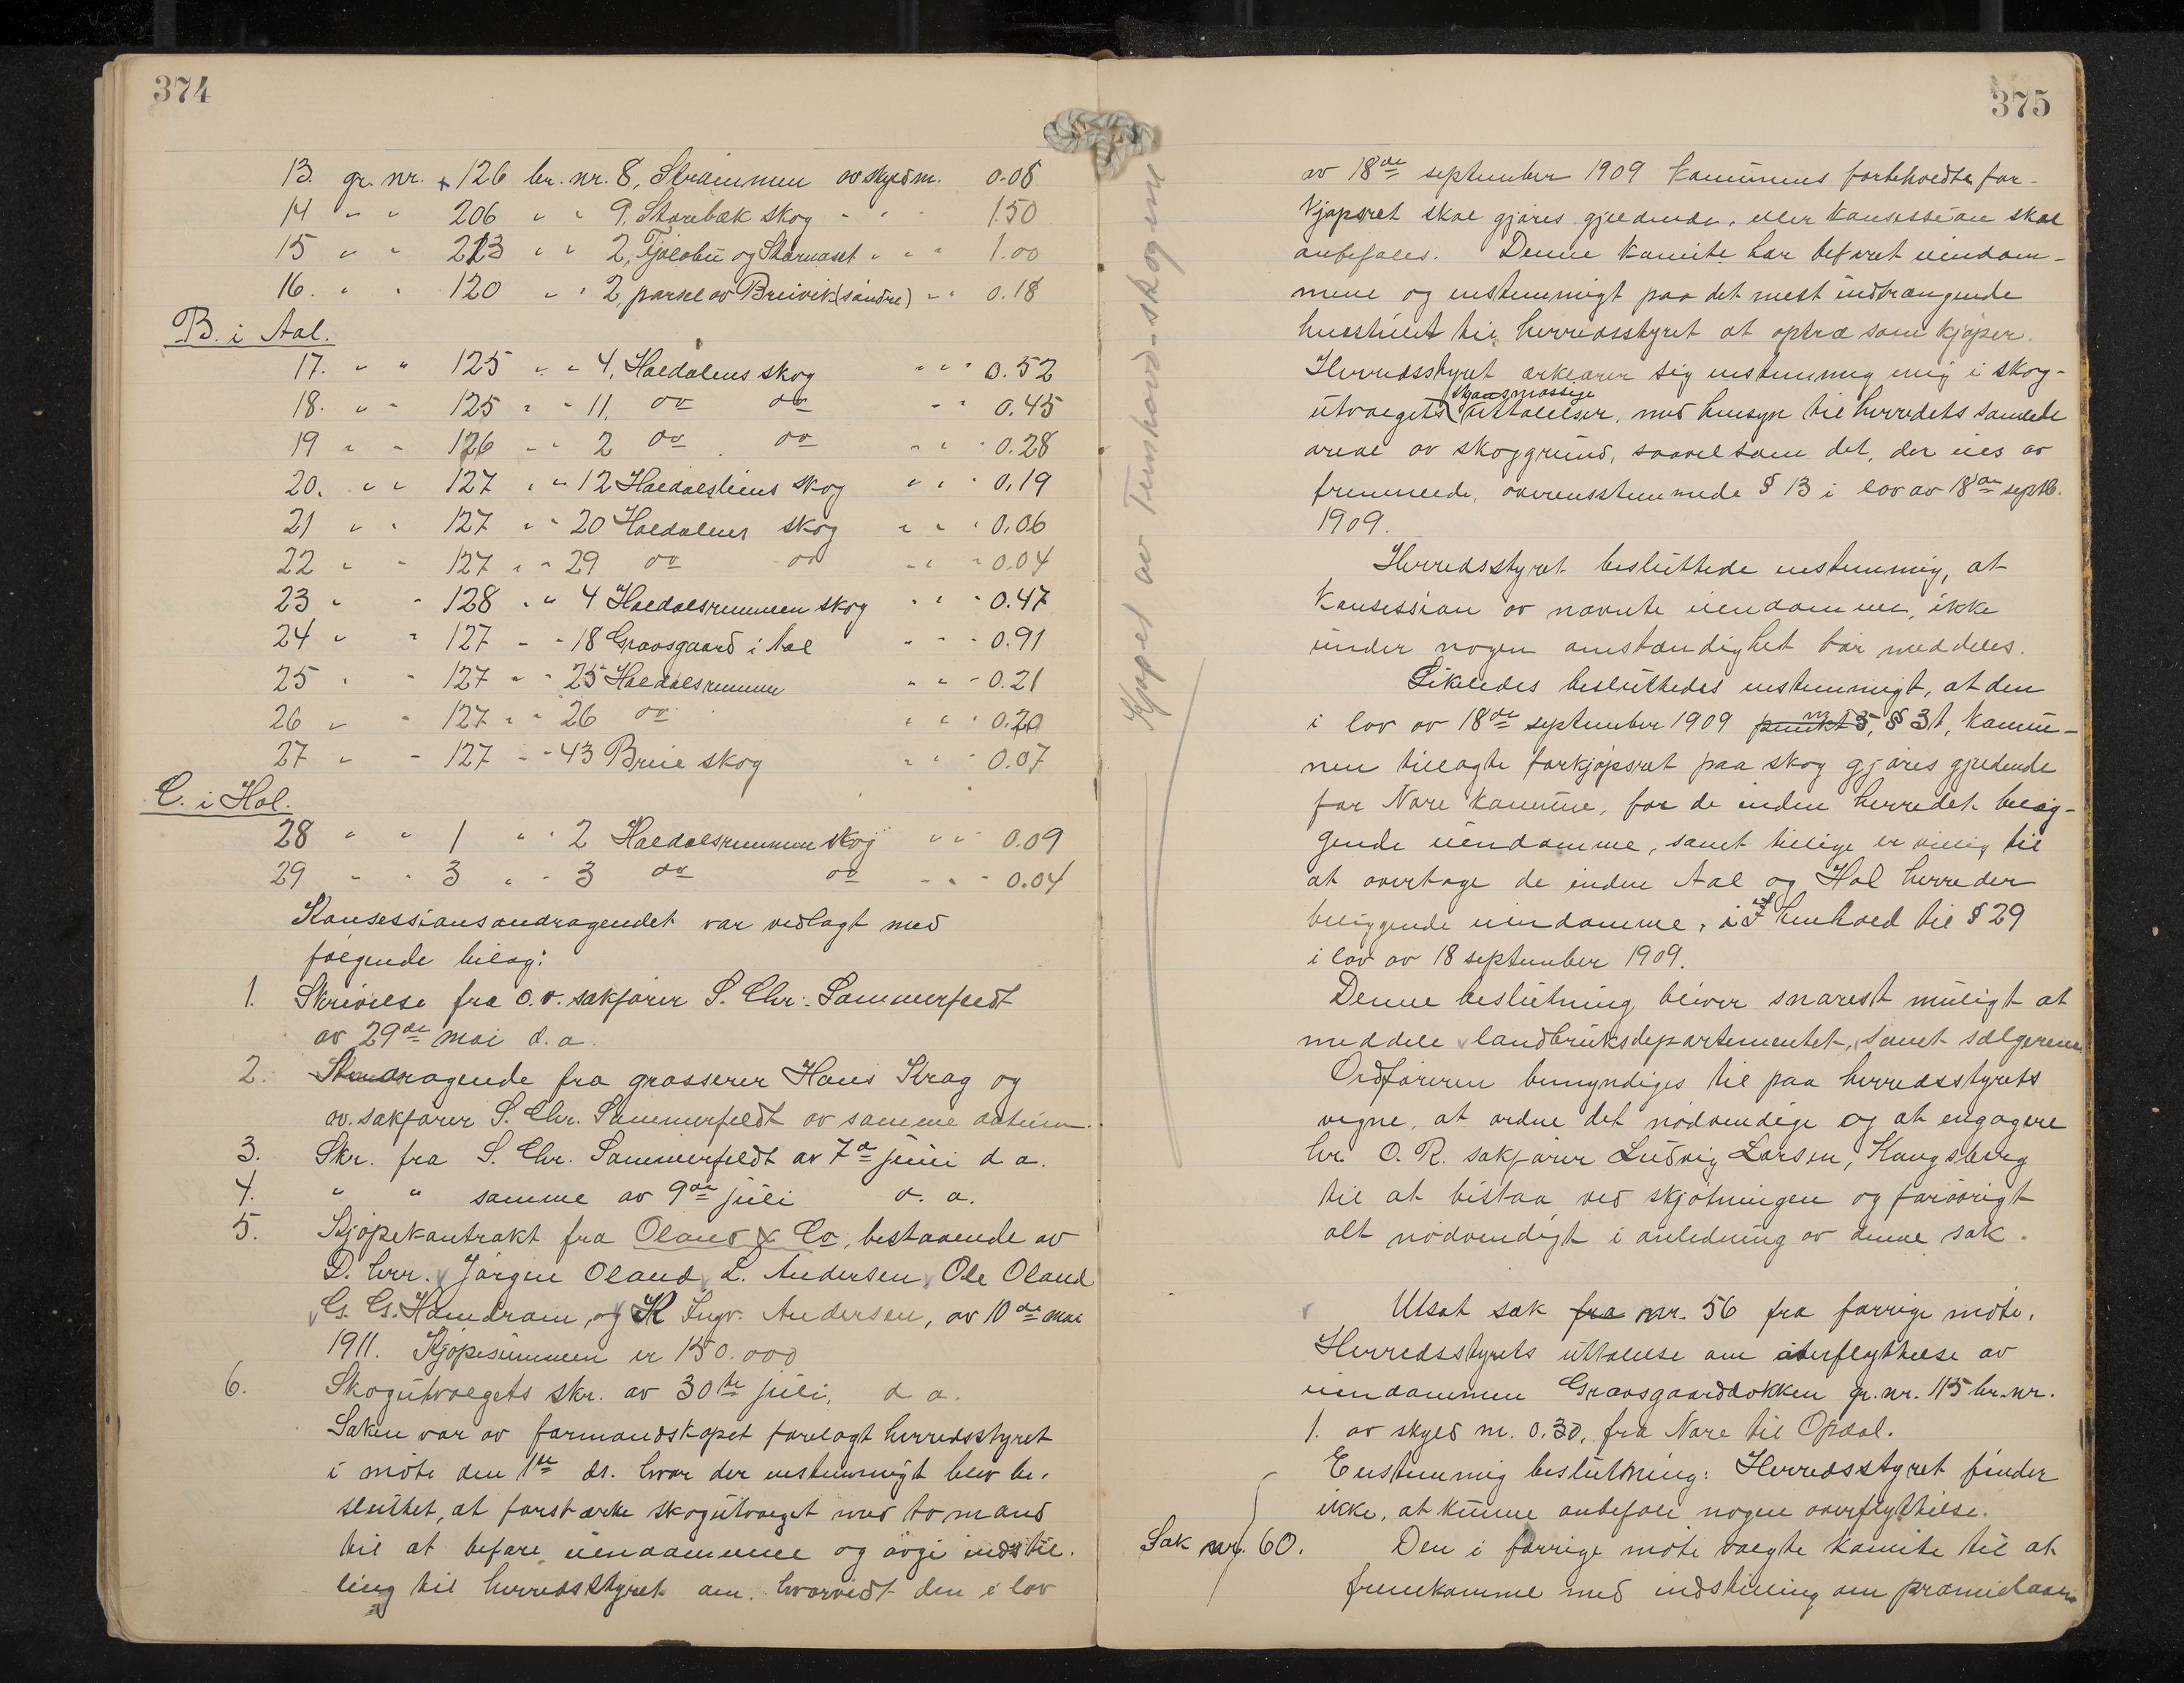 374
13. gr. nr. 126 br. nr. 8, Strømmen av skyld m. 0.08
14 " " 206 " " 9, Storebæk skog " " 1.50
15 " " 213 " " 2, Fjølobu og " " " 1.00
16. " " 120 " " 2, parsel av Breivik (søndre) " " 0.18
B. i Aal.
17. " " 125 " " 4, Haldalens skog " " " 0.52
18. " " 125 " " 11, do do " " 0.45
19 " " 126 " " 2 do do " " " 0.28
20. " " 127 " " 12 Haldalsliens skog " " " 0.19
21 " " 127 " " 20 Haldalens skog " " " 0.06
22 " " 127 " " 29 do do " " " 0.04
23 " " 128 " " 4 Haldalsremmen skog " " " 0.47
24 " " 127 " " 18 Gravsgaard i Aal " " " 0.91
25 " " 127 " " 25 Haldalsremmen " " " 0.21
26 " " 127 " " 26 do " " " 0.20
27 " " 127 " " 43 Breie skog " " " 0.07
C. i Hol.
28 " " 1 " " 2 Haldalsremmen skog " " " 0.09
29 " " 3 " " 3 do do " " " 0.04
Konsessionsandragendet var vedlagt med
følgende bilag:
1. Skrivelse fra o.r. sakfører S. Chr. Sommerfeldt
av 29de mai d. a.
2. Andragende fra grosserer Hans Krag og
ov. sakfører S. Chr. Sommerfeldt av samme datum.
3. Skr. fra S. Chr. Sommerfeldt av 7de juni d a.
4. " " samme av 9de juli d. a.
5. Kjøpekontrakt fra Oland & Co, bestaaende av
D. hrr. Jørgen Oland, L. Andersen, Ole Oland
G. G. Hamdram, og K Ingv. Andersen, av 10de mai
1911. Kjøpesummen er 150.000
6. Skogutvalgets skr. av 30te juli, d a.
Saken var av formandskapet forelagt herredsstyret
i møte den 1ste ds. hvor der enstemmigt blev be-
sluttet, at forstærke skogutvalget med to mand
til at befare eiendommene og avgi indstil-
ling til herredsstyret om, hvorvidt den i lov
Kjøpet av Tunhovd-skogene
375
av 18de september 1909 kommunens forbeholdte for-
kjøpsret skal gjøres gjeldende, eller konsession skal
anbefales. Denne komite har befaret eiendom-
mene og enstemmigt paa det mest indtrængende
henstillet til herredsstyret at optræ som kjøper.
Herredsstyret erklærer sig enstemmig enig i skog-
utvalgets skjønsmæssige uttalelser, med hensyn til herredets samlede
areal av skoggrund, saavel som det, der eies av
fremmede, overensstemmede § 13 i lov av 18de septb.
1909.
Herredsstyret besluttede enstemmig, at
konsession av nævnte eiendomme, ikke
under nogen omstændighet bør meddeles.
Likeledes besluttedes enstemmigt, at den
i lov av 18de september 1909 punkt 5, § 31, kommu-
nen tillagte forkjøpsret paa skog gjøres gjeldende
for Nore kommune, for de inden herredet belig-
gende eiendomme, samt tillige er villig til
at overtage de inden Aal og Hol herreder
beliggende eiendomme, i henhold til § 29
i lov av 18 september 1909.
Denne beslutning bliver snarest muligt at
meddele landbruksdepartementet, samt sælgerene
Ordføreren bemyndiges til paa herredsstyrets
vegne, at ordne det nødvendige og at engagere
hr. O. R. sakfører Ludvig Larsen, Kongsberg
til at bistaa ved skjøtningen og forøvrigt
alt nødvendigt i anledning av denne sak.
Utsat sak fra nr. 56 fra forrige møte.
Herredsstyrets uttalelse om overflyttelse av
eiendommen Gravsgaarddokken gr. nr. 115 br. nr.
1. av skyld m. 0.30, fra Nore til Opdal.
Enstemmig beslutning: Herredsstyret finder
ikke, at kunne anbefale nogen overflyttelse.
Sak nr. 60. Den i forrige møte valgte komite til at
fremkomme med indstilling om præmielaan